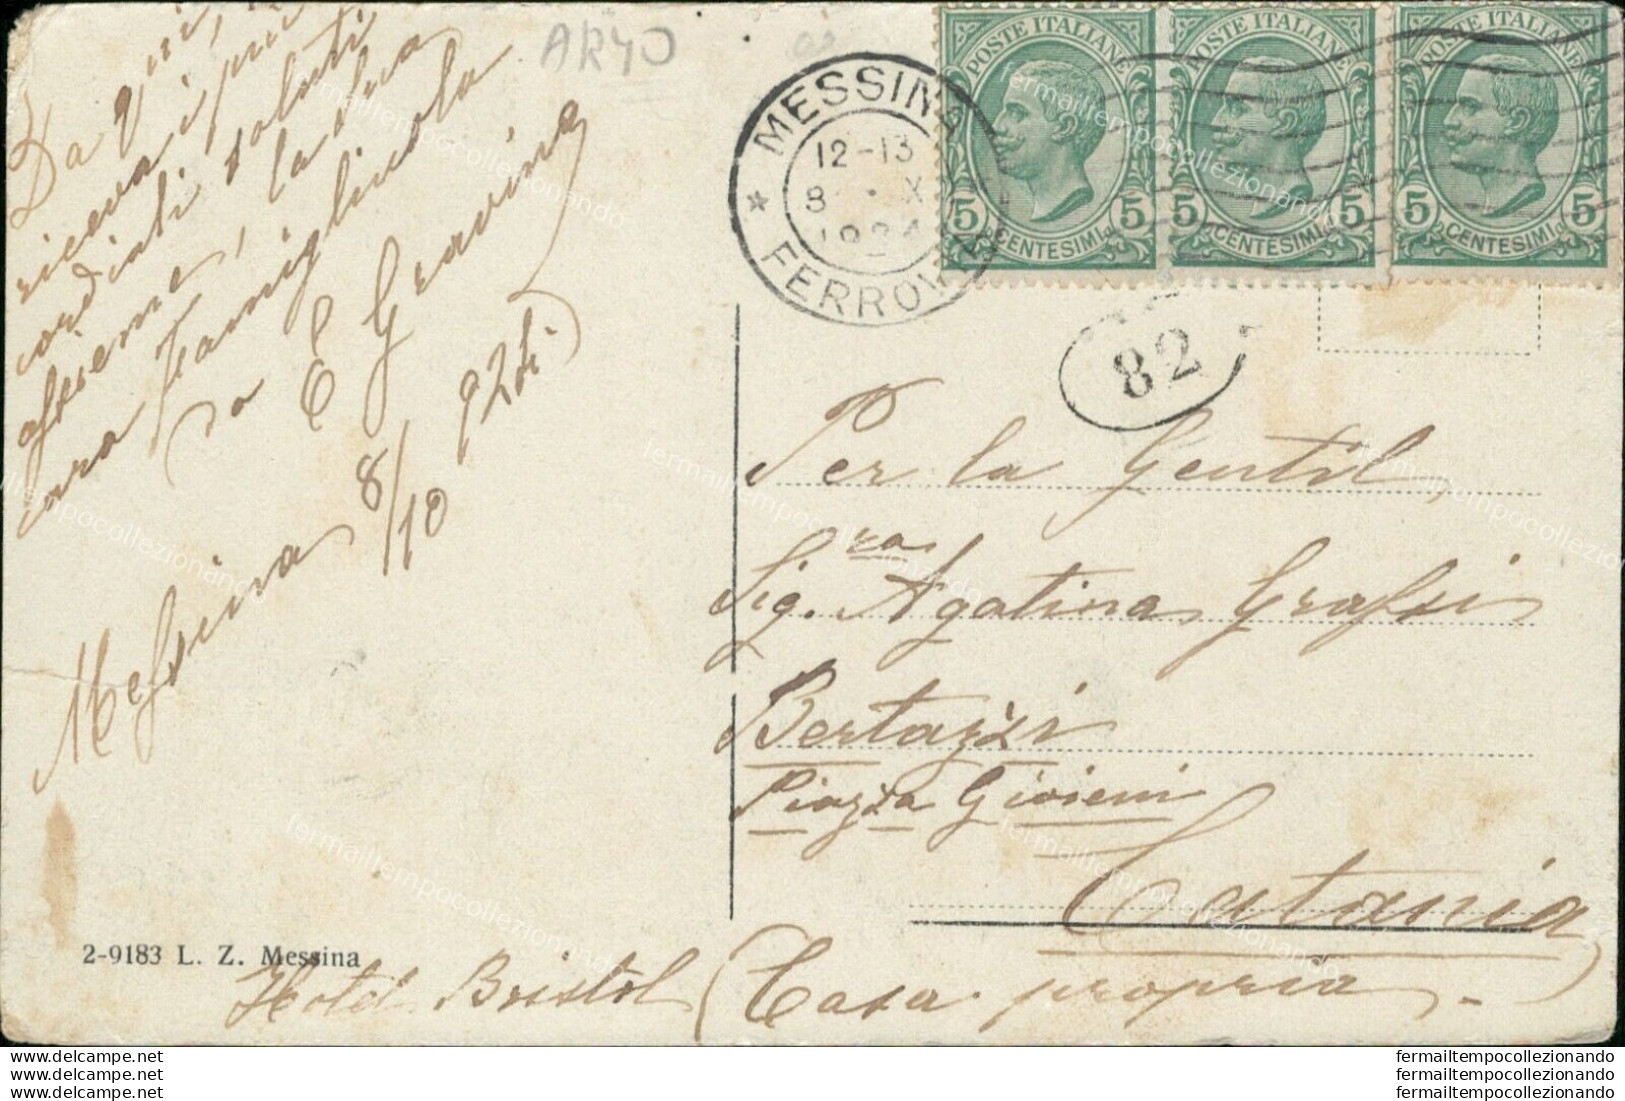 Da Qui,
riceva i più
cordiali saluti
assieme, la sua
cara Famigliuola
da E Gravina
Messina 8/10 924.
AR40
MESSINA
12-13
8 X
1924
FERROVIA
POSTE ITALIANE
5 CENTESIMI 5
POSTE ITALIANE
5 CENTESIMI 5
POSTE ITALIANE
5 CENTESIMI 5
82
Per la Gentil,
Sig.ra Agatina Grassi
Bertazzi
Piazza Gioieni
Catania
(Casa propria)
2-9183 L. Z. Messina
Hotel Bristol
fermailtempocollezionando
www.delcampe.net
www.delcampe.net
www.delcampe.net
fermailtempocollezionando
fermailtempocollezionando
fermailtempocollezionando